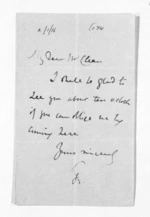 My dear McLean
I shall be glad to
see you about ten o'clock
if you can oblige me by
coming here
Yours sincerely